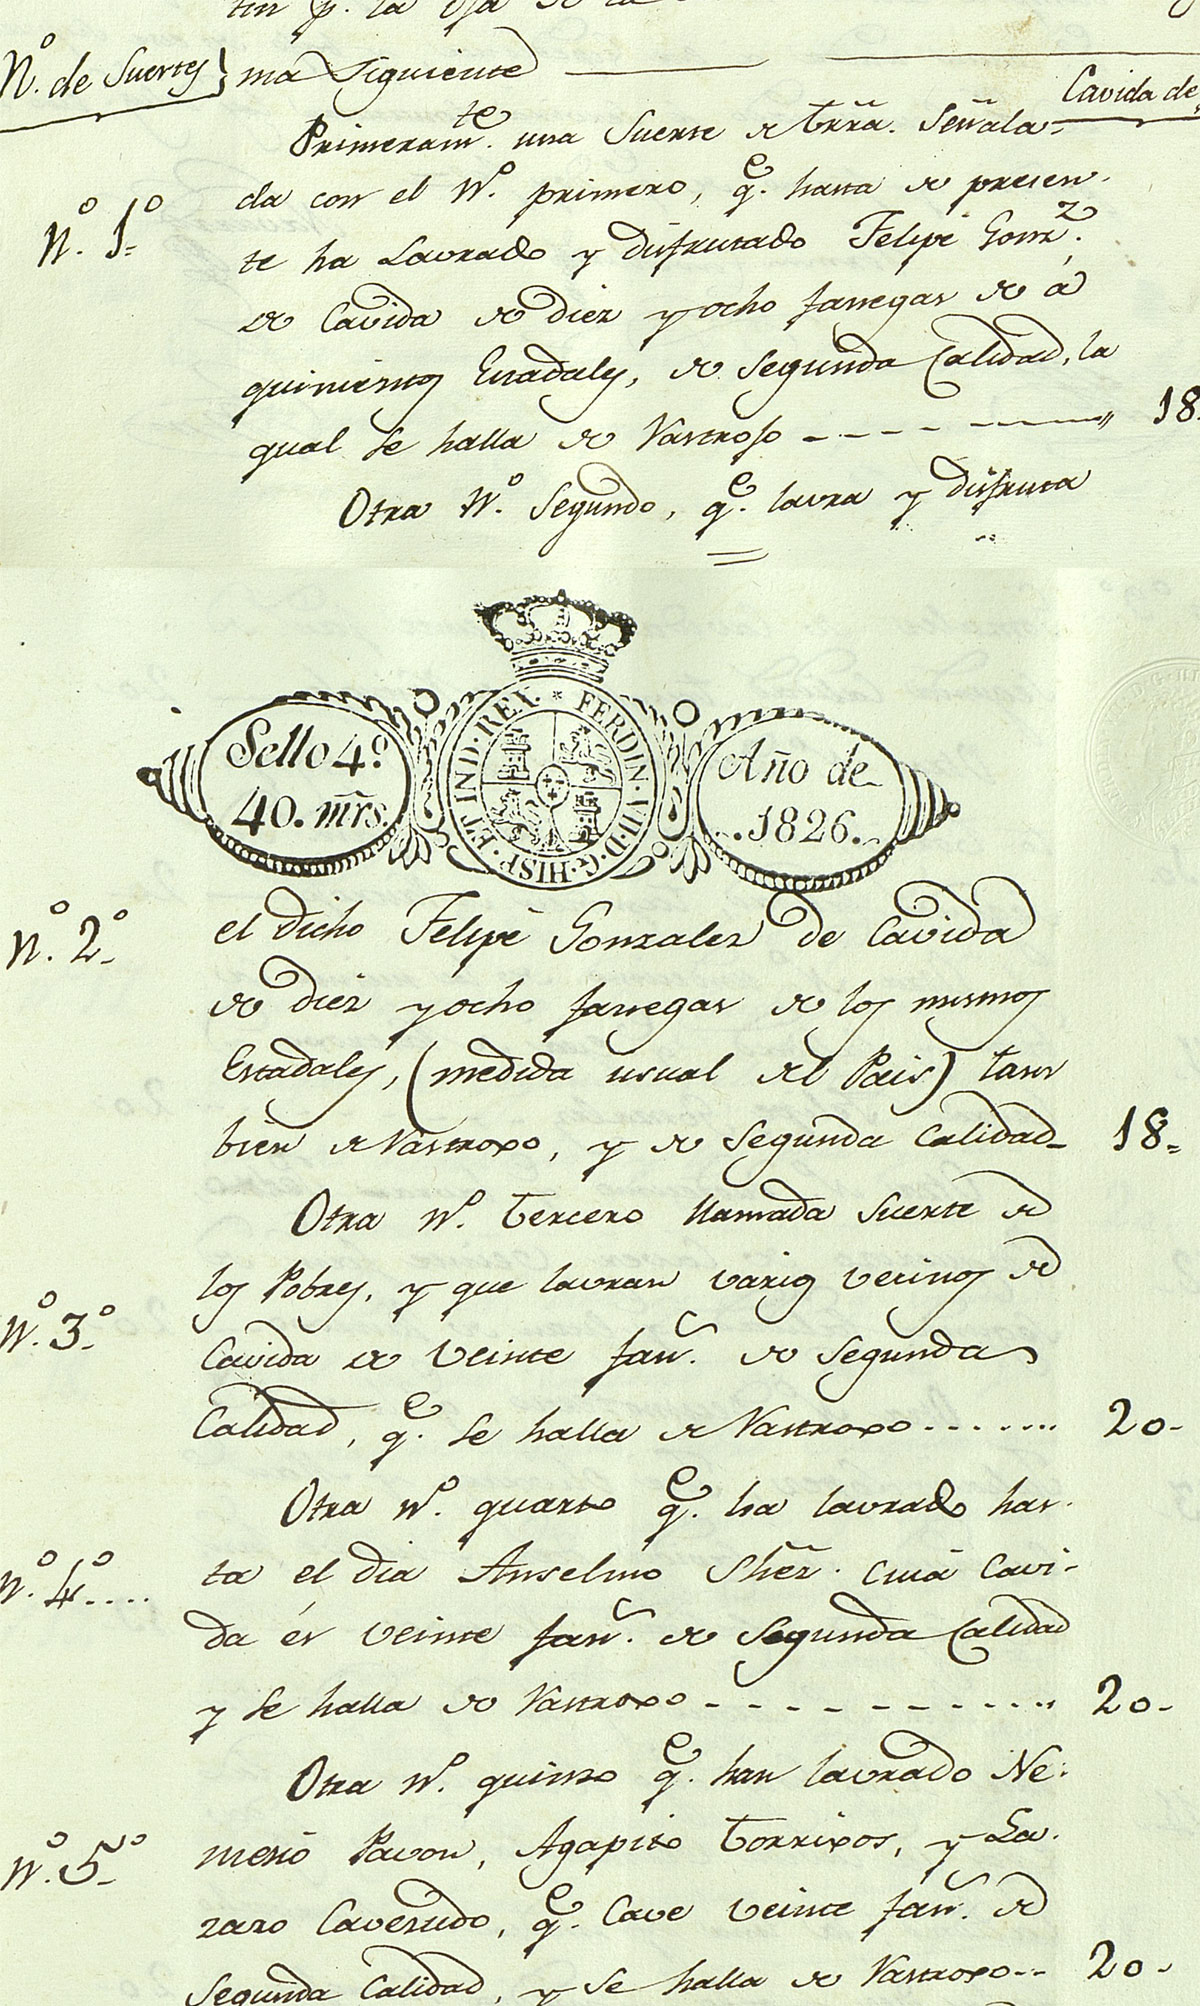 Nº. de Suertes } ma siguiente
Cavida de
Primeramte. una Suerte de trra. Señala-
da con el Nº. primero, qe. hasta de presen-
Nº. 1º=
te ha Lavrado y disfrutado Felipe Gonz.
de Cavida de diez y ocho fanegas de á
quinientos Estadales, de Segunda Calidad, la
qual se halla de Rastrojo 18.
Otra Nº. Segundo, qe. lavra y disfruta
FERDIN. VII. D. G. HISP. ET IND. REX.
Sello 4º.
40. mrs.
Año de
1826.
Nº. 2º=
el dicho Felipe Gonzalez de Cavida
de diez y ocho fanegas de los mismos
Estadales, (medida usual del Pais) tam
bien de Rastroxo, y de Segunda Calidad 18=
Otra Nº. tercero llamada Suerte de
los Pobres, y que lavran varios vecinos de
Nº. 3º=
Cavida de veinte fan. de Segunda
Calidad, qe. se halla de Rastroxo........ 20-
Otra Nº. quarto qe. ha lavrado has-
Nº. 4º....
ta el dia Anselmo Shez. cuia Cavi-
da es veinte fan. de Segunda Calidad
y se halla de Rastroxo 20-
Otra Nº. quinto qe. han lavrado Ne-
Nº. 5º=
mesio Pavon, Agapito Torrixos, y La-
zaro Caverudo, qe. Cave veinte fan. de
Segunda Calidad, y se halla de Rastroxo.. 20-